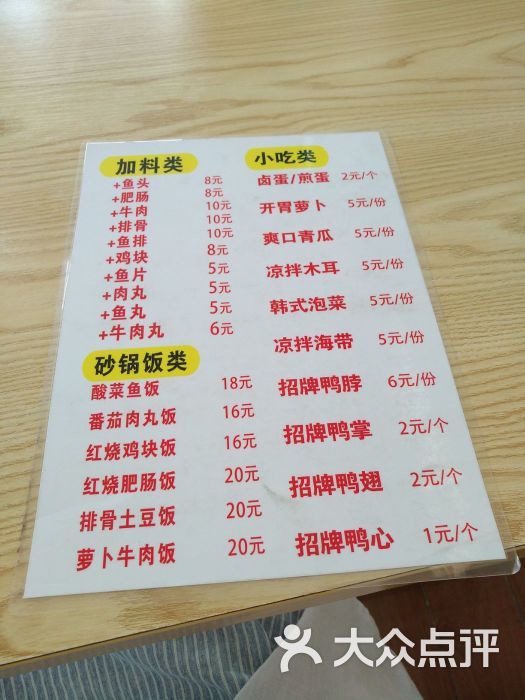 加料类
+鱼头 8元
+肥肠 8元
+牛肉 10元
+排骨 10元
+鱼排 10元
+鸡块 8元
+鱼片 5元
+肉丸 5元
+鱼丸 5元
+牛肉丸 6元
砂锅饭类
酸菜鱼饭 18元
番茄肉丸饭 16元
红烧鸡块饭 16元
红烧肥肠饭 20元
排骨土豆饭 20元
萝卜牛肉饭 20元
小吃类
卤蛋/煎蛋 2元/个
开胃萝卜 5元/份
爽口青瓜 5元/份
凉拌木耳 5元/份
韩式泡菜 5元/份
凉拌海带 5元/份
招牌鸭脖 6元/份
招牌鸭掌 2元/个
招牌鸭翅 2元/个
招牌鸭心 1元/个
大众点评